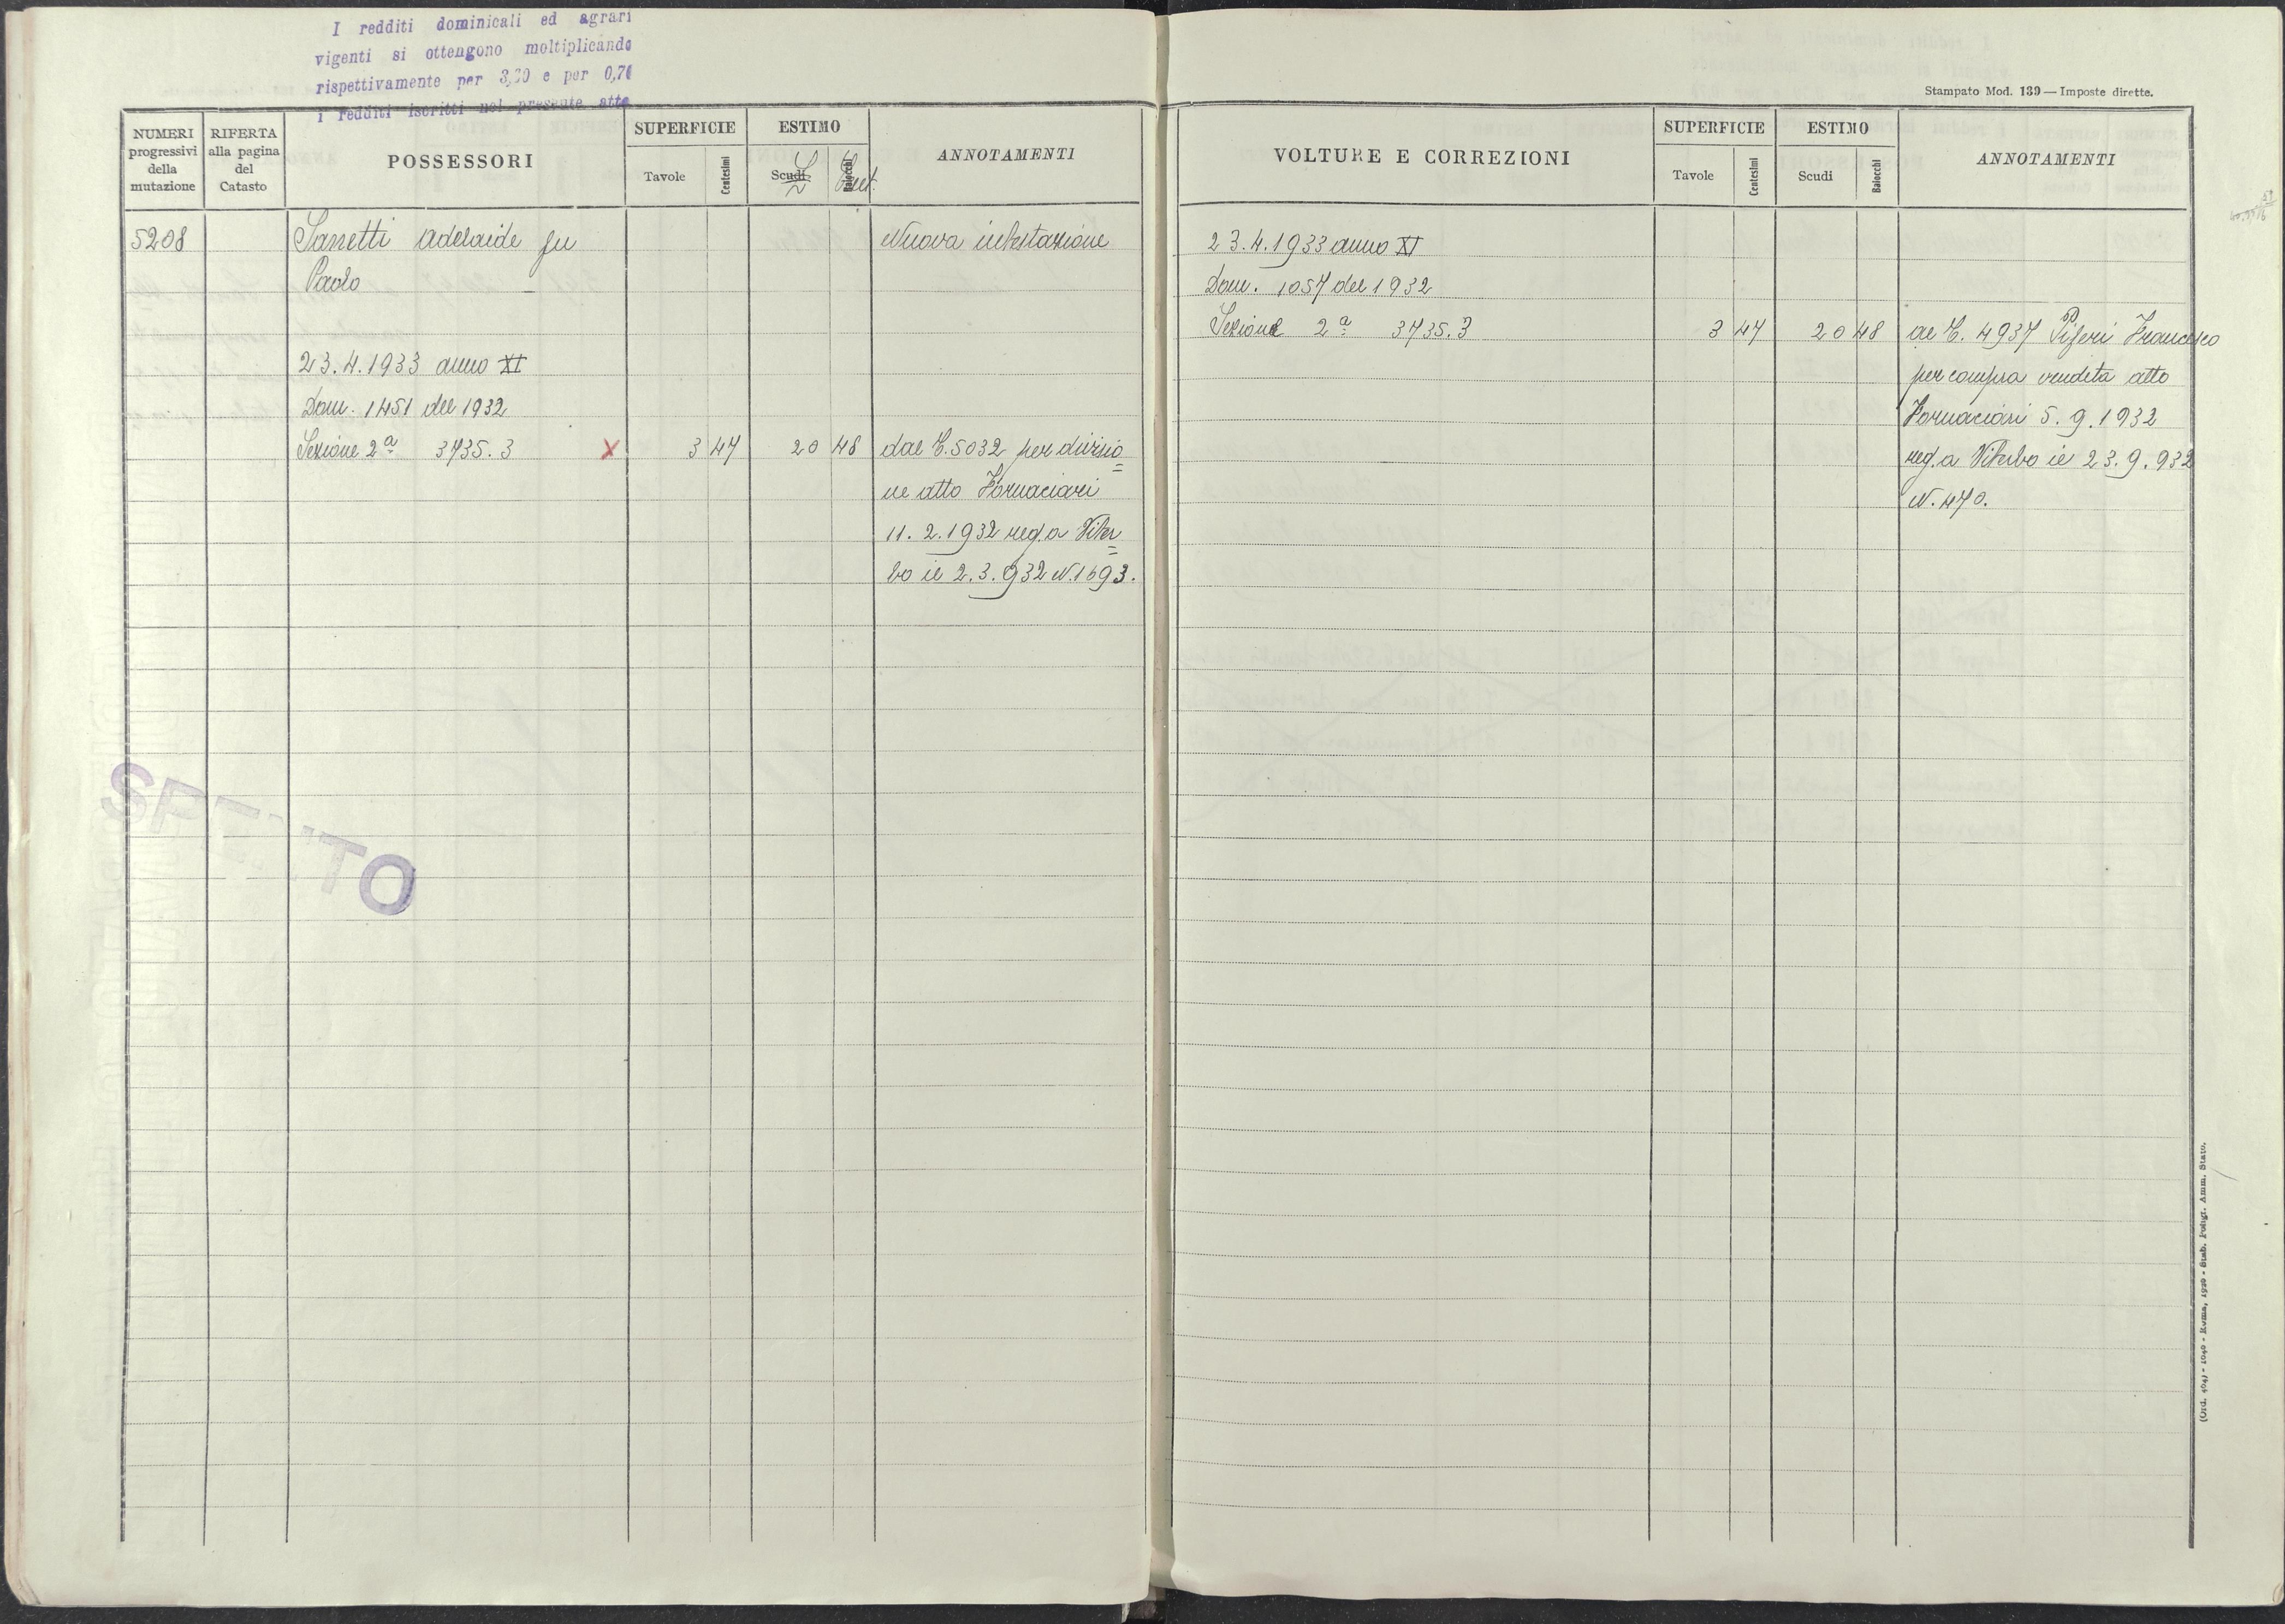 I redditi dominicali ed agrari
vigenti si ottengono moltiplicando
rispettivamente per 3,20 e per 0,70
i redditi iscritti nel presente atto
NUMERI progressivi della mutazione
RIFERTA alla pagina del Catasto
POSSESSORI
SUPERFICIE
Tavole
Centesimi
ESTIMO
Scudi
Baiocchi
ANNOTAMENTI
5208
Sanetti Adelaide fu
Nuova intestazione
Paolo
23.4.1933 anno XI
Dom. 1451 del 1932
Sezione 2ª 3735.3 X 3 47 20 48 dal C. 5032 per divisio=
ne atto Fornaciari
11.2.1932 reg. a Viter=
bo il 2.3.932 N. 1693.
SPENTO
Stampato Mod. 139 — Imposte dirette.
VOLTURE E CORREZIONI
SUPERFICIE
Tavole
Centesimi
ESTIMO
Scudi
Baiocchi
ANNOTAMENTI
23.4.1933 anno XI
Dom. 1057 del 1932
Sezione 2ª 3735.3 3 47 20 48 al C. 4937 Piferi Francesco
per compra vendita atto
Fornaciari 5.9.1932
reg. a Viterbo il 23.9.932
N. 470.
(Ord. 404) - 1040 - Roma, 1929 - Stab. Poligr. Amm. Stato.